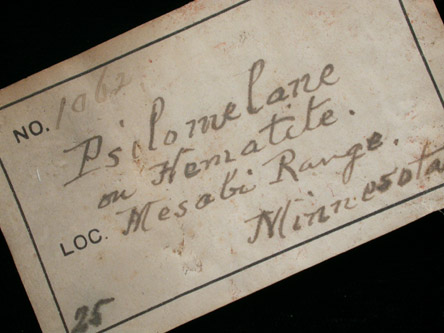 NO. 1962
Psilomelane
on Hematite.
LOC. Mesabi Range.
Minnesota
25